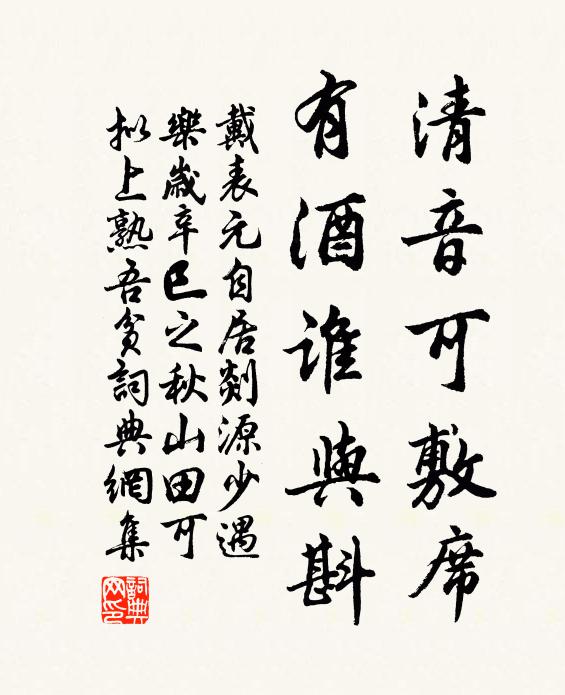 清音可敷席
有酒谁與斟
戴表元自居剡源少遇
樂歲辛巳之秋山田可
拟上熟吾貧詞典網集
詞典網印